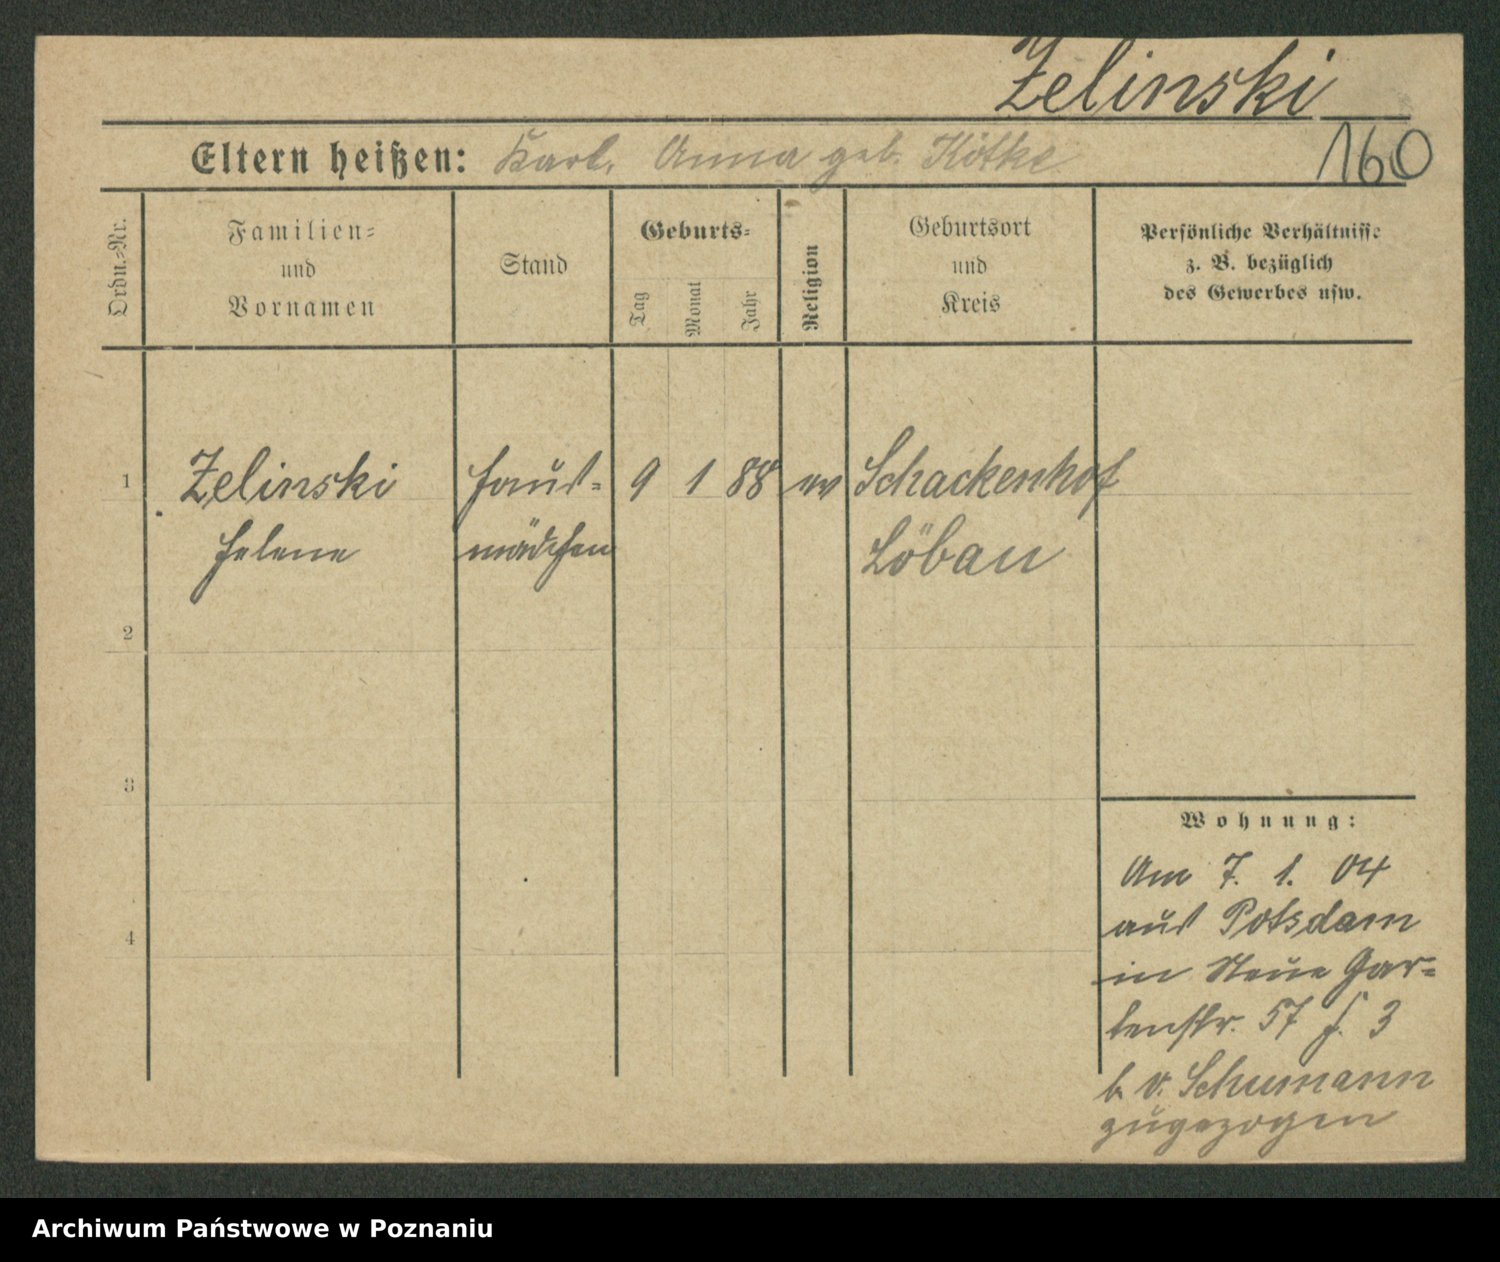 Zelinski
160
Eltern heißen: Karl, Anna geb. Kötke
Ordn.-Nr.
Familien-
und
Vornamen
Stand
Geburts-
Tag
Monat
Jahr
Religion
Geburtsort
und
Kreis
Persönliche Verhältnisse
z. B. bezüglich
des Gewerbes usw.
1 Zelinski Haus- 9 1 88 ev Schackenhof
Helene mädchen Löbau
2
3
4
Wohnung:
Am 7. 1. 04
aus Potsdam
in Neue Gar-
tenstr. 57 H. 3
b. v. Schumann
zugezogen
Archiwum Państwowe w Poznaniu